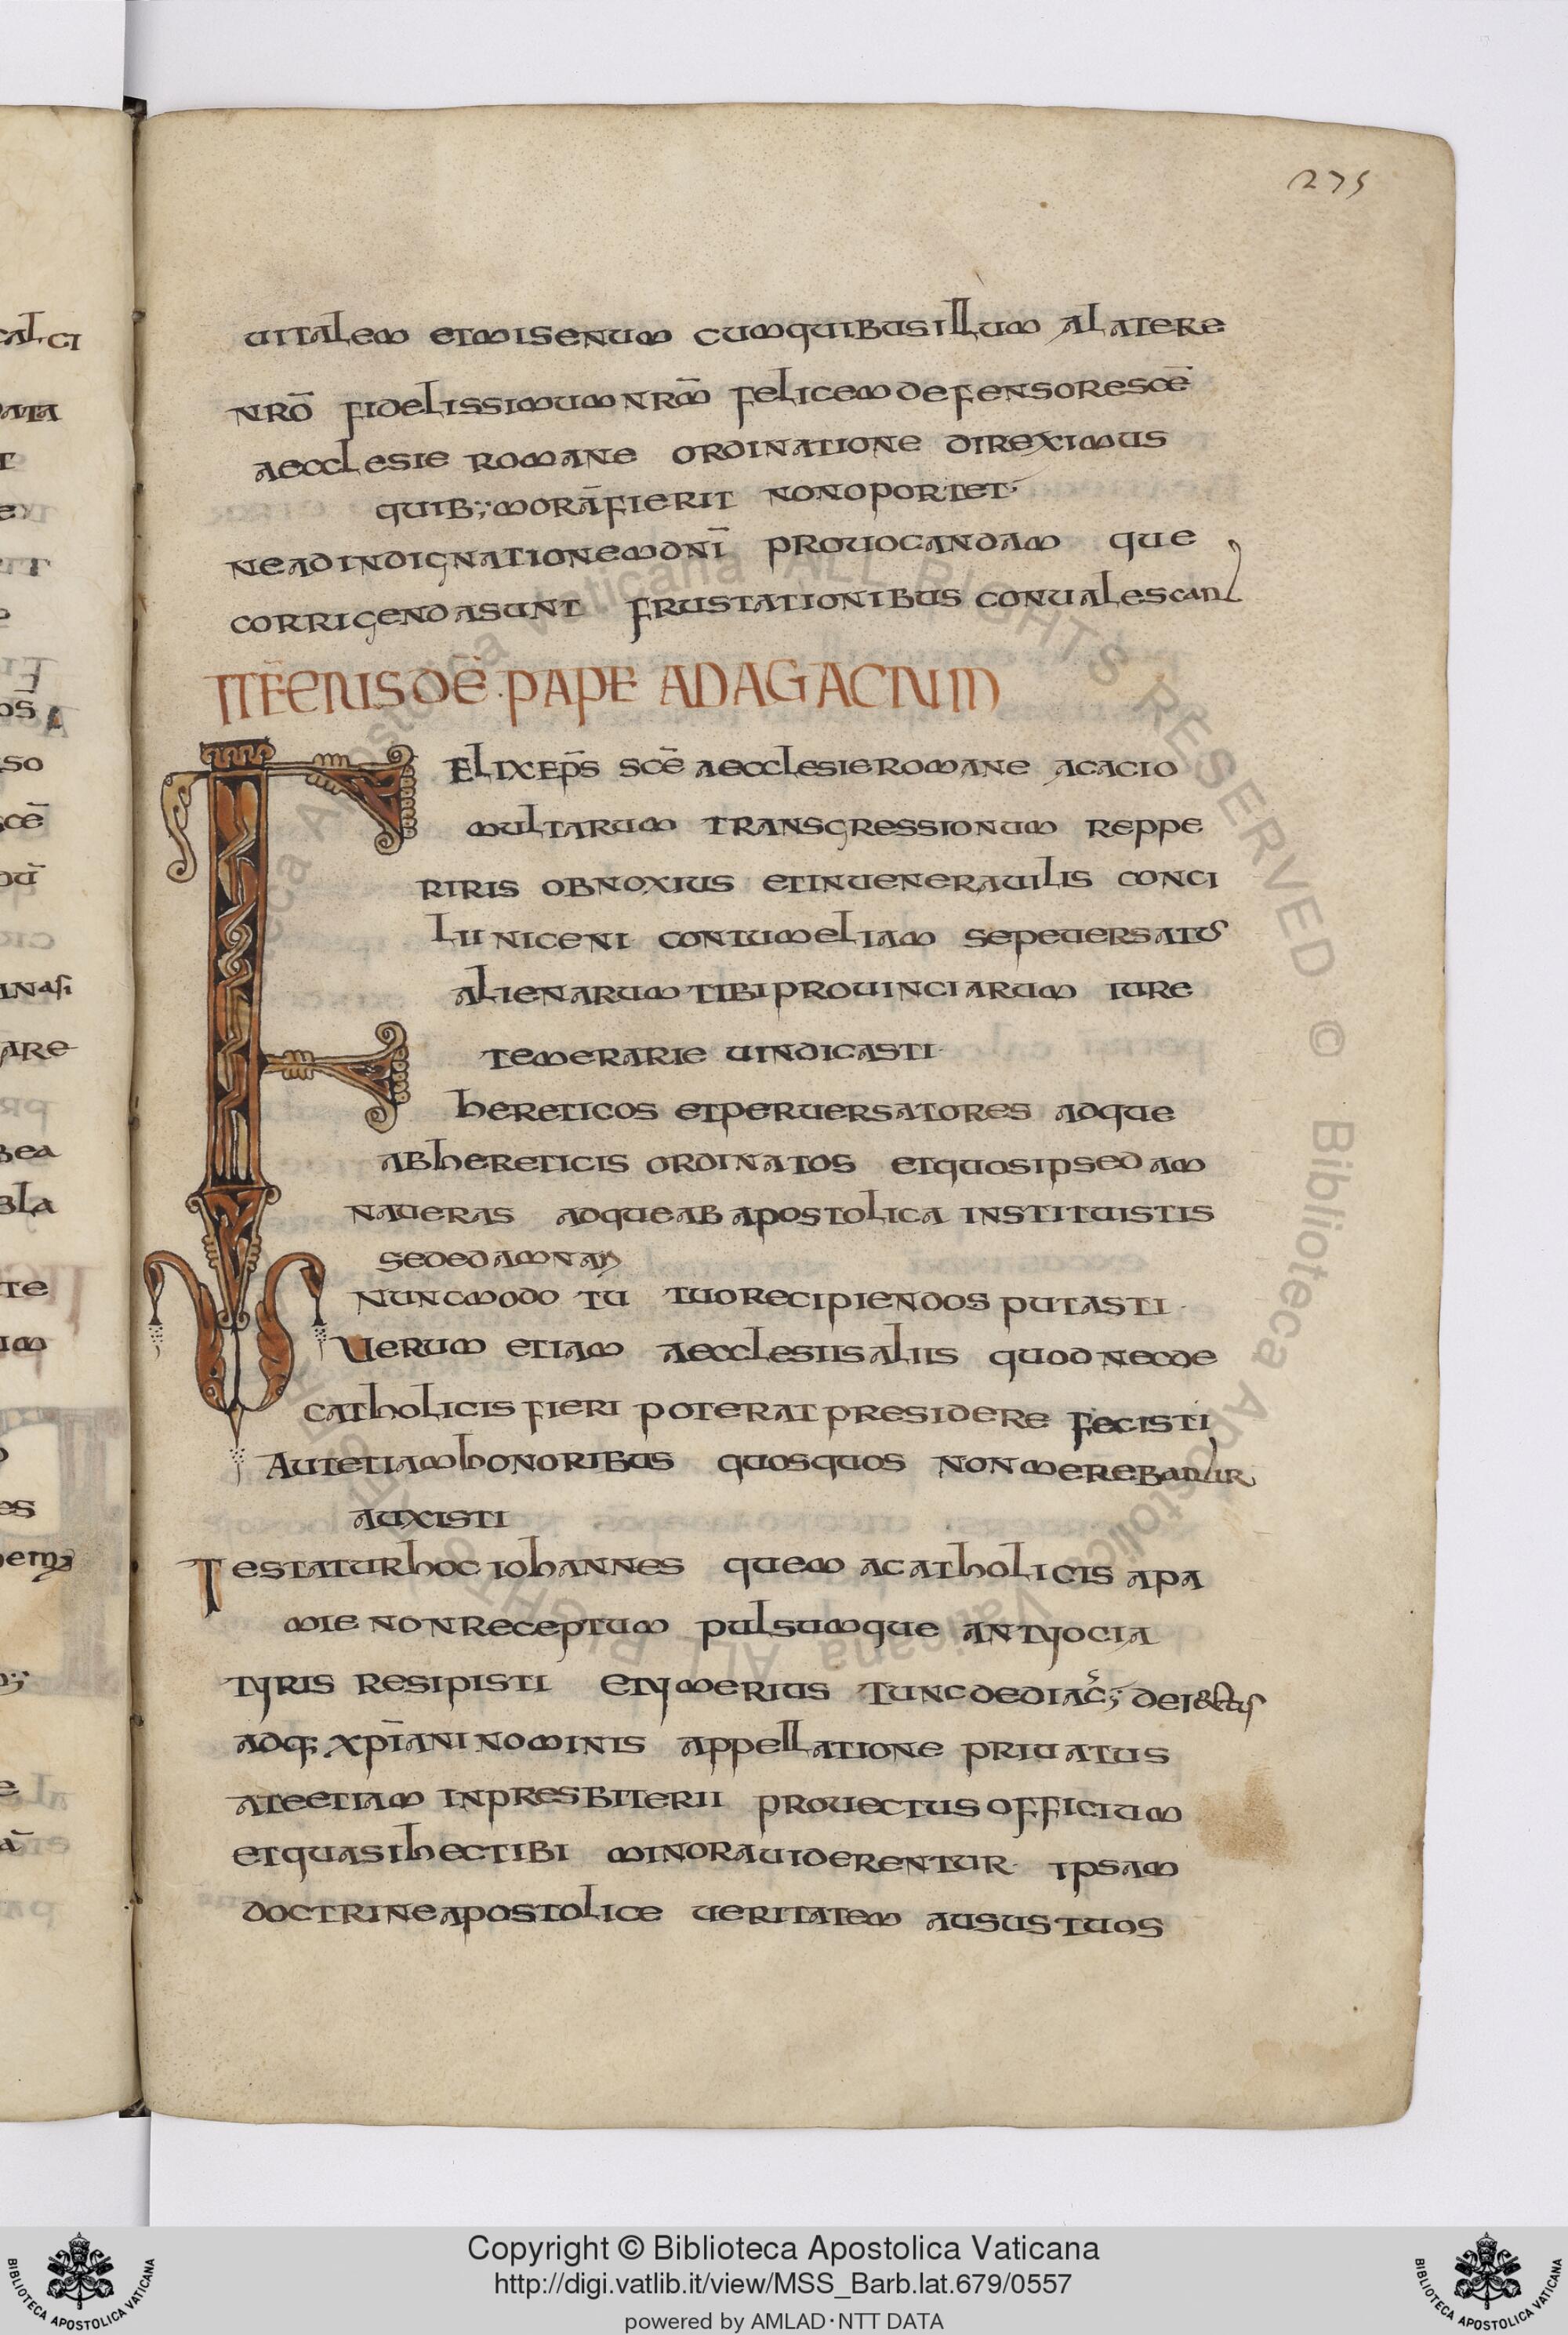 275
uitalem et misenum cum quibus illum a latere
nrō fidelissimum nrm̄ felicem defensore scē
aecclesie romane ordinatione direximus
quib; morā fierit non oportet
ne ad indignationem dn̄i prouocandam que
corrigenda sunt frustationibus conualescant
ITĒ EIUSDĒ PAPE AD AGACIUM
Felix ep̄s scē aecclesie romane acacio
multarum transgressionum reppe
riris obnoxius et in uenerauilis conci
lii niceni contumeliam sepe uersatus
alienarum tibi prouinciarum iure
temerarie uindicasti
hereticos et peruersatores adque
ab hereticis ordinatos et quos ipse dam
naueras adque ab apostolica instituistis
sede damnan
nunc modo tu tuo recipiendos putasti
Uerum etiam aecclesiis aliis quod nec de
catholicis fieri poterat presidere fecisti
Aut etiam honoribus quos quos non merebantur
auxisti
Testatur hoc iohannes quem a catholicis apa
mie non receptum pulsumque antyocia
tyris resipisti et ymerius tunc de diac̄; deiectus
adq; xp̄iani nominis appellatione priuatus
ate etiam in presbiterii prouectus officium
et quasi hec tibi minora uiderentur ipsam
doctrine apostolice ueritatem ausus tuos
Copyright © Biblioteca Apostolica Vaticana
http://digi.vatlib.it/view/MSS_Barb.lat.679/0557
powered by AMLAD·NTT DATA
BIBLIOTECA APOSTOLICA VATICANA
BIBLIOTECA APOSTOLICA VATICANA